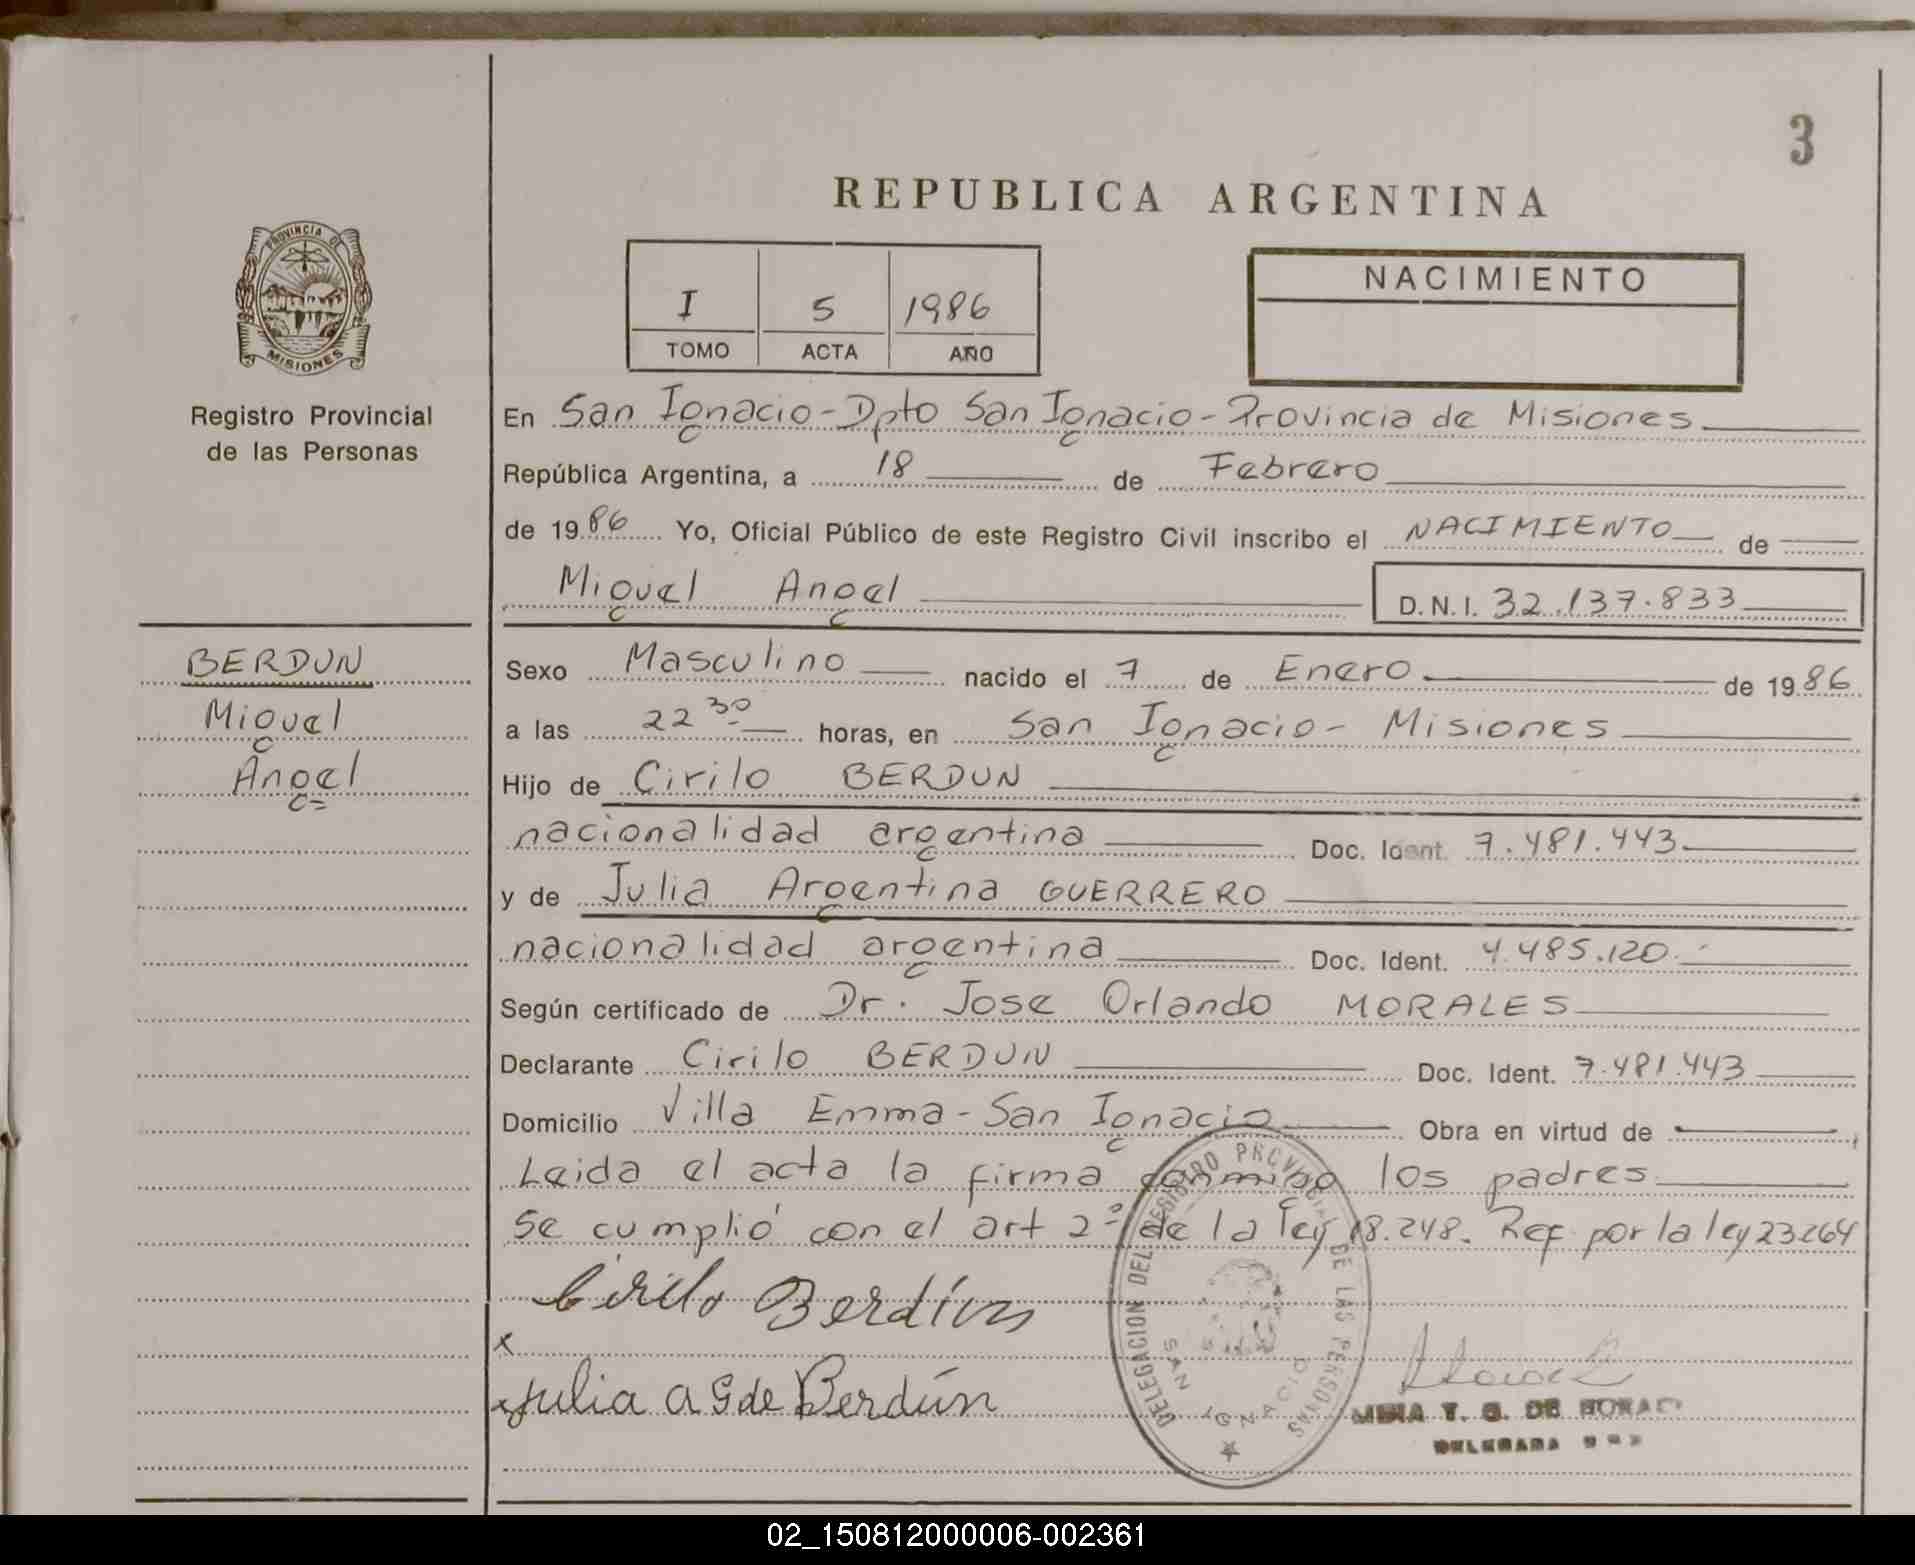 3
REPUBLICA ARGENTINA
PROVINCIA DE
MISIONES
Registro Provincial
de las Personas
I 5 1986
TOMO ACTA AÑO
NACIMIENTO
En San Ignacio - Dpto San Ignacio - Provincia de Misiones
República Argentina, a 18 de Febrero
de 1986 Yo, Oficial Público de este Registro Civil inscribo el NACIMIENTO de
Miguel Angel D.N.I. 32.137.833
BERDUN
Miguel
Angel
Sexo Masculino nacido el 7 de Enero de 1986
a las 22 30 horas, en San Ignacio - Misiones
Hijo de Cirilo BERDUN
nacionalidad argentina Doc. Ident. 7.481.443
y de Julia Argentina GUERRERO
nacionalidad argentina Doc. Ident. 4.485.120.
Según certificado de Dr. Jose Orlando MORALES
Declarante Cirilo BERDUN Doc. Ident. 7.481.443
Domicilio Villa Emma - San Ignacio Obra en virtud de
Leida el acta la firma conmigo los padres
Se cumplió con el art 2º de la ley 18.248. Ref. por la ley 23264
Cirilo Berdún
x
x Julia A G de Berdún
DELEGACION DEL REGISTRO PROVINCIAL DE LAS PERSONAS
SAN IGNACIO
T. G. DE
DELEGADA
02_150812000006-002361